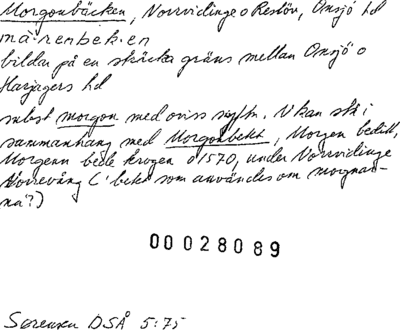 Morgonbäcken, Norrvidinge o Reslöv, Onsjö hd
må·rенbek·en
bildar på en sträcka gräns mellan Onsjö o
Harjagers hd
subst morgon med oviss syftn. N kan stå i
sammanhang med Morgonbekt, Morgen beditt,
Morgenn bede krogen o 1570, under Norrvidinge
Norrevång (' bete som användes om morgnar-
na?)
00028089
Sørensen DSÅ 5:75